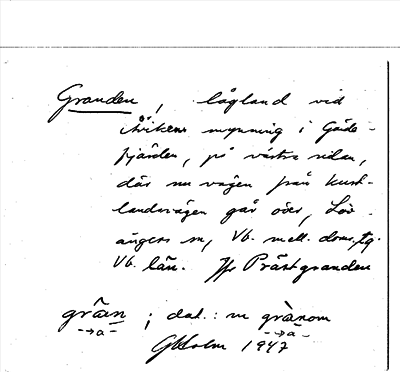 Granden, lågland vid
Åvikens mynning i Gåde-
fjärden, på västra sidan,
där nu vägen från kust-
landsvägen går över, Löv-
ångers sn, Vb. mell. doms.
Vb. län. Jfr Prästgranden
grân ; dat.: na grànom
→a- -→a-
GHolm 1947